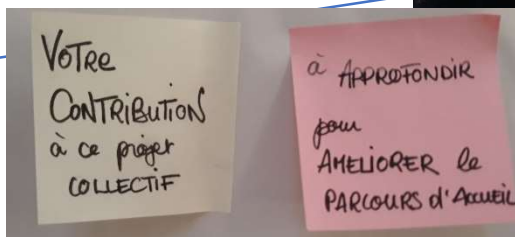 VOTRE
CONTRIBUTION
à ce projet
COLLECTIF
à APPROFONDIR
pour
AMELIORER le
PARCOURS d'Accueil